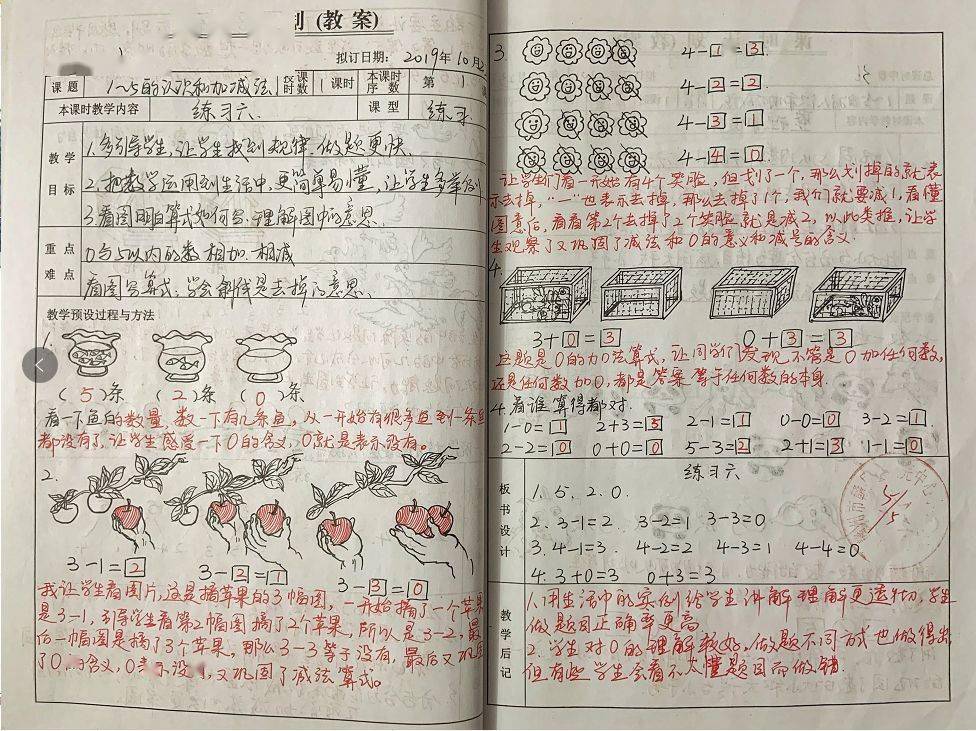 划 (教 案)
拟订日期: 2019年10月
课 题 1~5的认识和加减法 课时数 1课时 本课时序数 第
本课时教学内容 练习六 课 型 练习
教 学 目 标
1.多引导学生,让学生找到规律,做题更快
2.把数学运用到生活中,更简单易懂,让学生多举例
3.看图明白算式如何写,理解图中的意思
重 点 难 点
0与5以内的数相加.相减
看图写算式,学会斜线是去掉的意思、
教学预设过程与方法
1.
(5)条 (2)条 (0)条
看一下鱼的数量,数一下有几条鱼,从一开始有很多鱼到一条鱼
都没有了,让学生感受一下0的含义,0就是表示没有。
2.
3-1=2 3-2=1 3-3=0
我让学生看图片,这是摘苹果的3幅图,一开始摘了一个苹果
是3-1,引导学生看第2幅图摘了2个苹果,所以是3-2,最
后一幅图是摘了3个苹果,那么3-3等于没有,最后又巩固
了0的含义,0表示没有,又巩固了减法算式。
3.
4-1=3.
4-2=2
4-3=1
4-4=0.
让学生们看一开始有4个笑脸,但划了一个,那么划掉的就表
示去掉,“一”也表示去掉,那么去掉了1个,我们就要减1,看懂
图意后,看看第2个去掉了2个笑脸就是减2,以此类推,让学
生观察了又巩固了减法和0的意义和减号的含义.
4.
3+0=3 0+3=3
这题是0的加法算式,让同学们发现,不管是0加任何数,
还是任何数加0,都是答案等于任何数的本身.
4.看谁算得都对.
1-0=1 2+3=5 2-1=1 0-0=0 3-2=1
2-2=0 0+0=0 5-3=2 2+1=3 1-1=0
板 书 设 计
练习六
1. 5, 2. 0.
2. 3-1=2 3-2=1 3-3=0
3. 4-1=3. 4-2=2 4-3=1 4-4=0
4: 3+0=3 0+3=3
教 学 后 记
1.用生活中的实例给学生讲解理解更透彻,学生
做题目正确率更高
2.学生对0的理解较好,做题不同方式也做得出
但有些学生会看不太懂题目而做错.